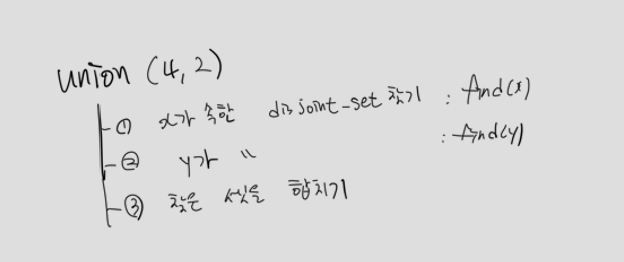 union (4, 2)
① x가 속한 disjoint-set 찾기 : find(x)
② y가 " : find(y)
③ 찾은 셋을 합치기